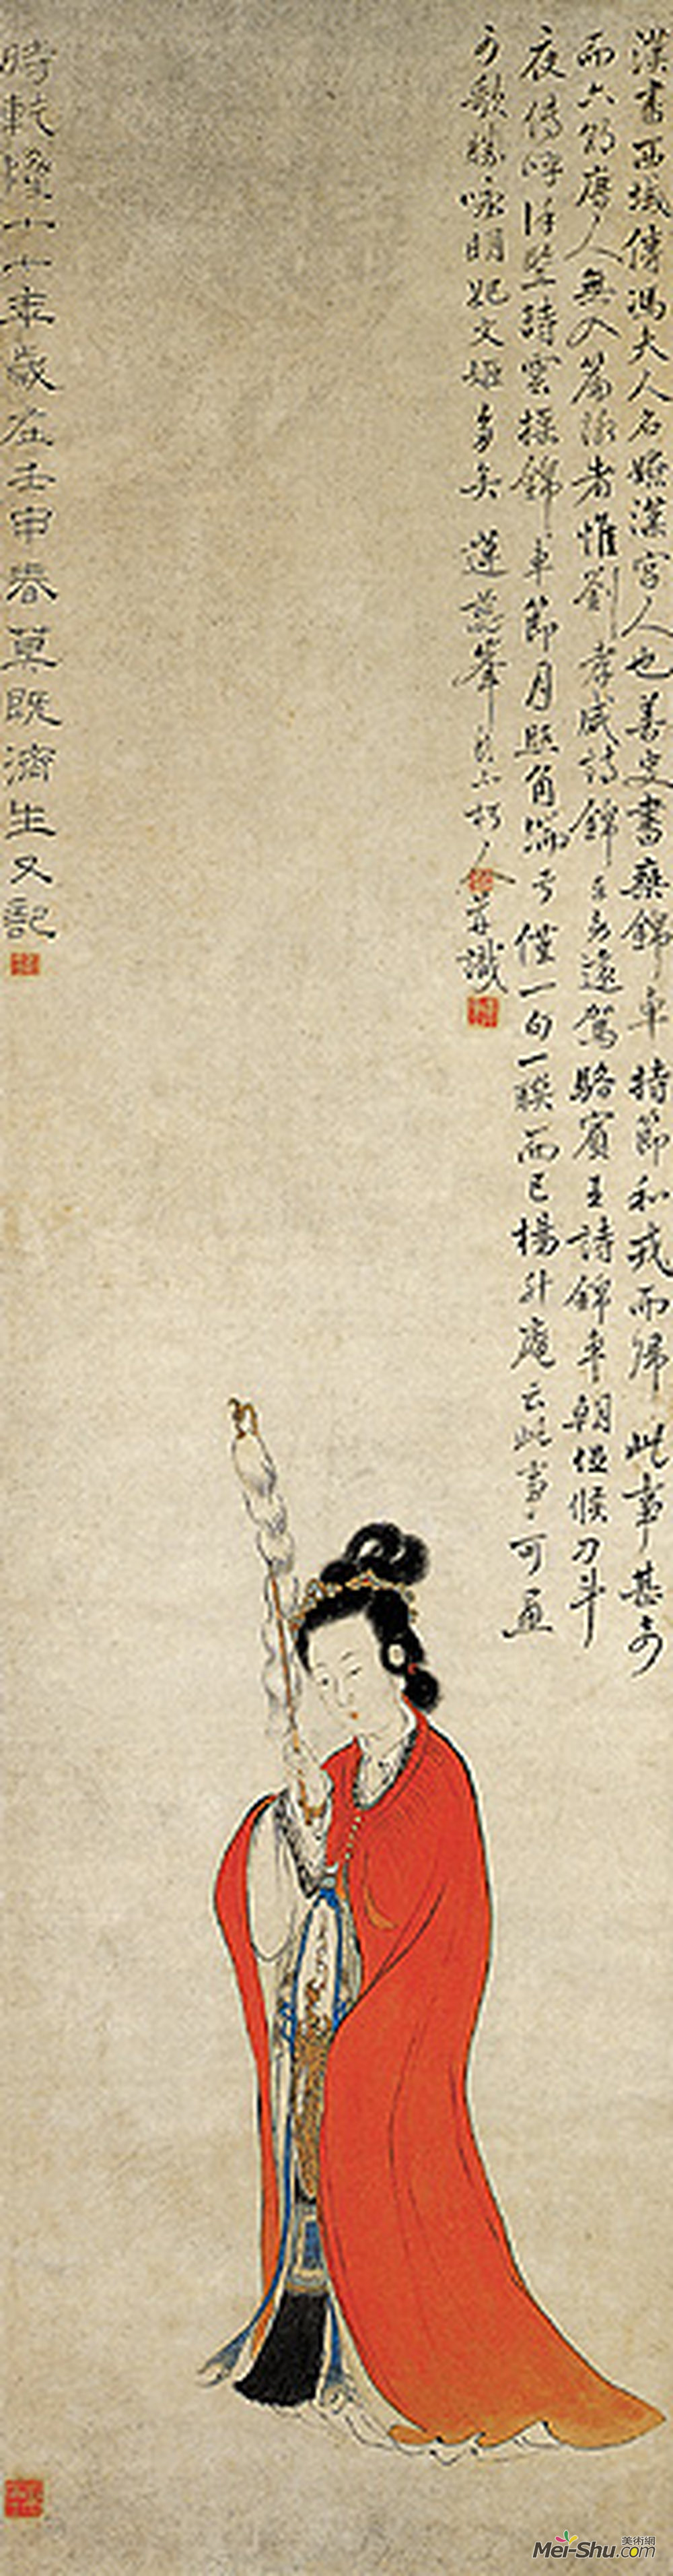 漢書西域傳馮夫人名嫽漢宮人也善史書乘錦車持節和戎而歸此事甚奇
而六朝唐人無入篇詠者惟劉孝威詩錦車勞遠駕駱賓王詩錦車朝促候刀斗
夜傳呼徐堅詩雲搖錦車節月照角端弓僅一句一聯而已楊升庵云此事可畫
可歌勝咏明妃文姬多矣 蓮蕊峯頭不朽人并識
時乾隆十七年歲在壬申春莫既濟生又記
Mei-Shu.com 美術網